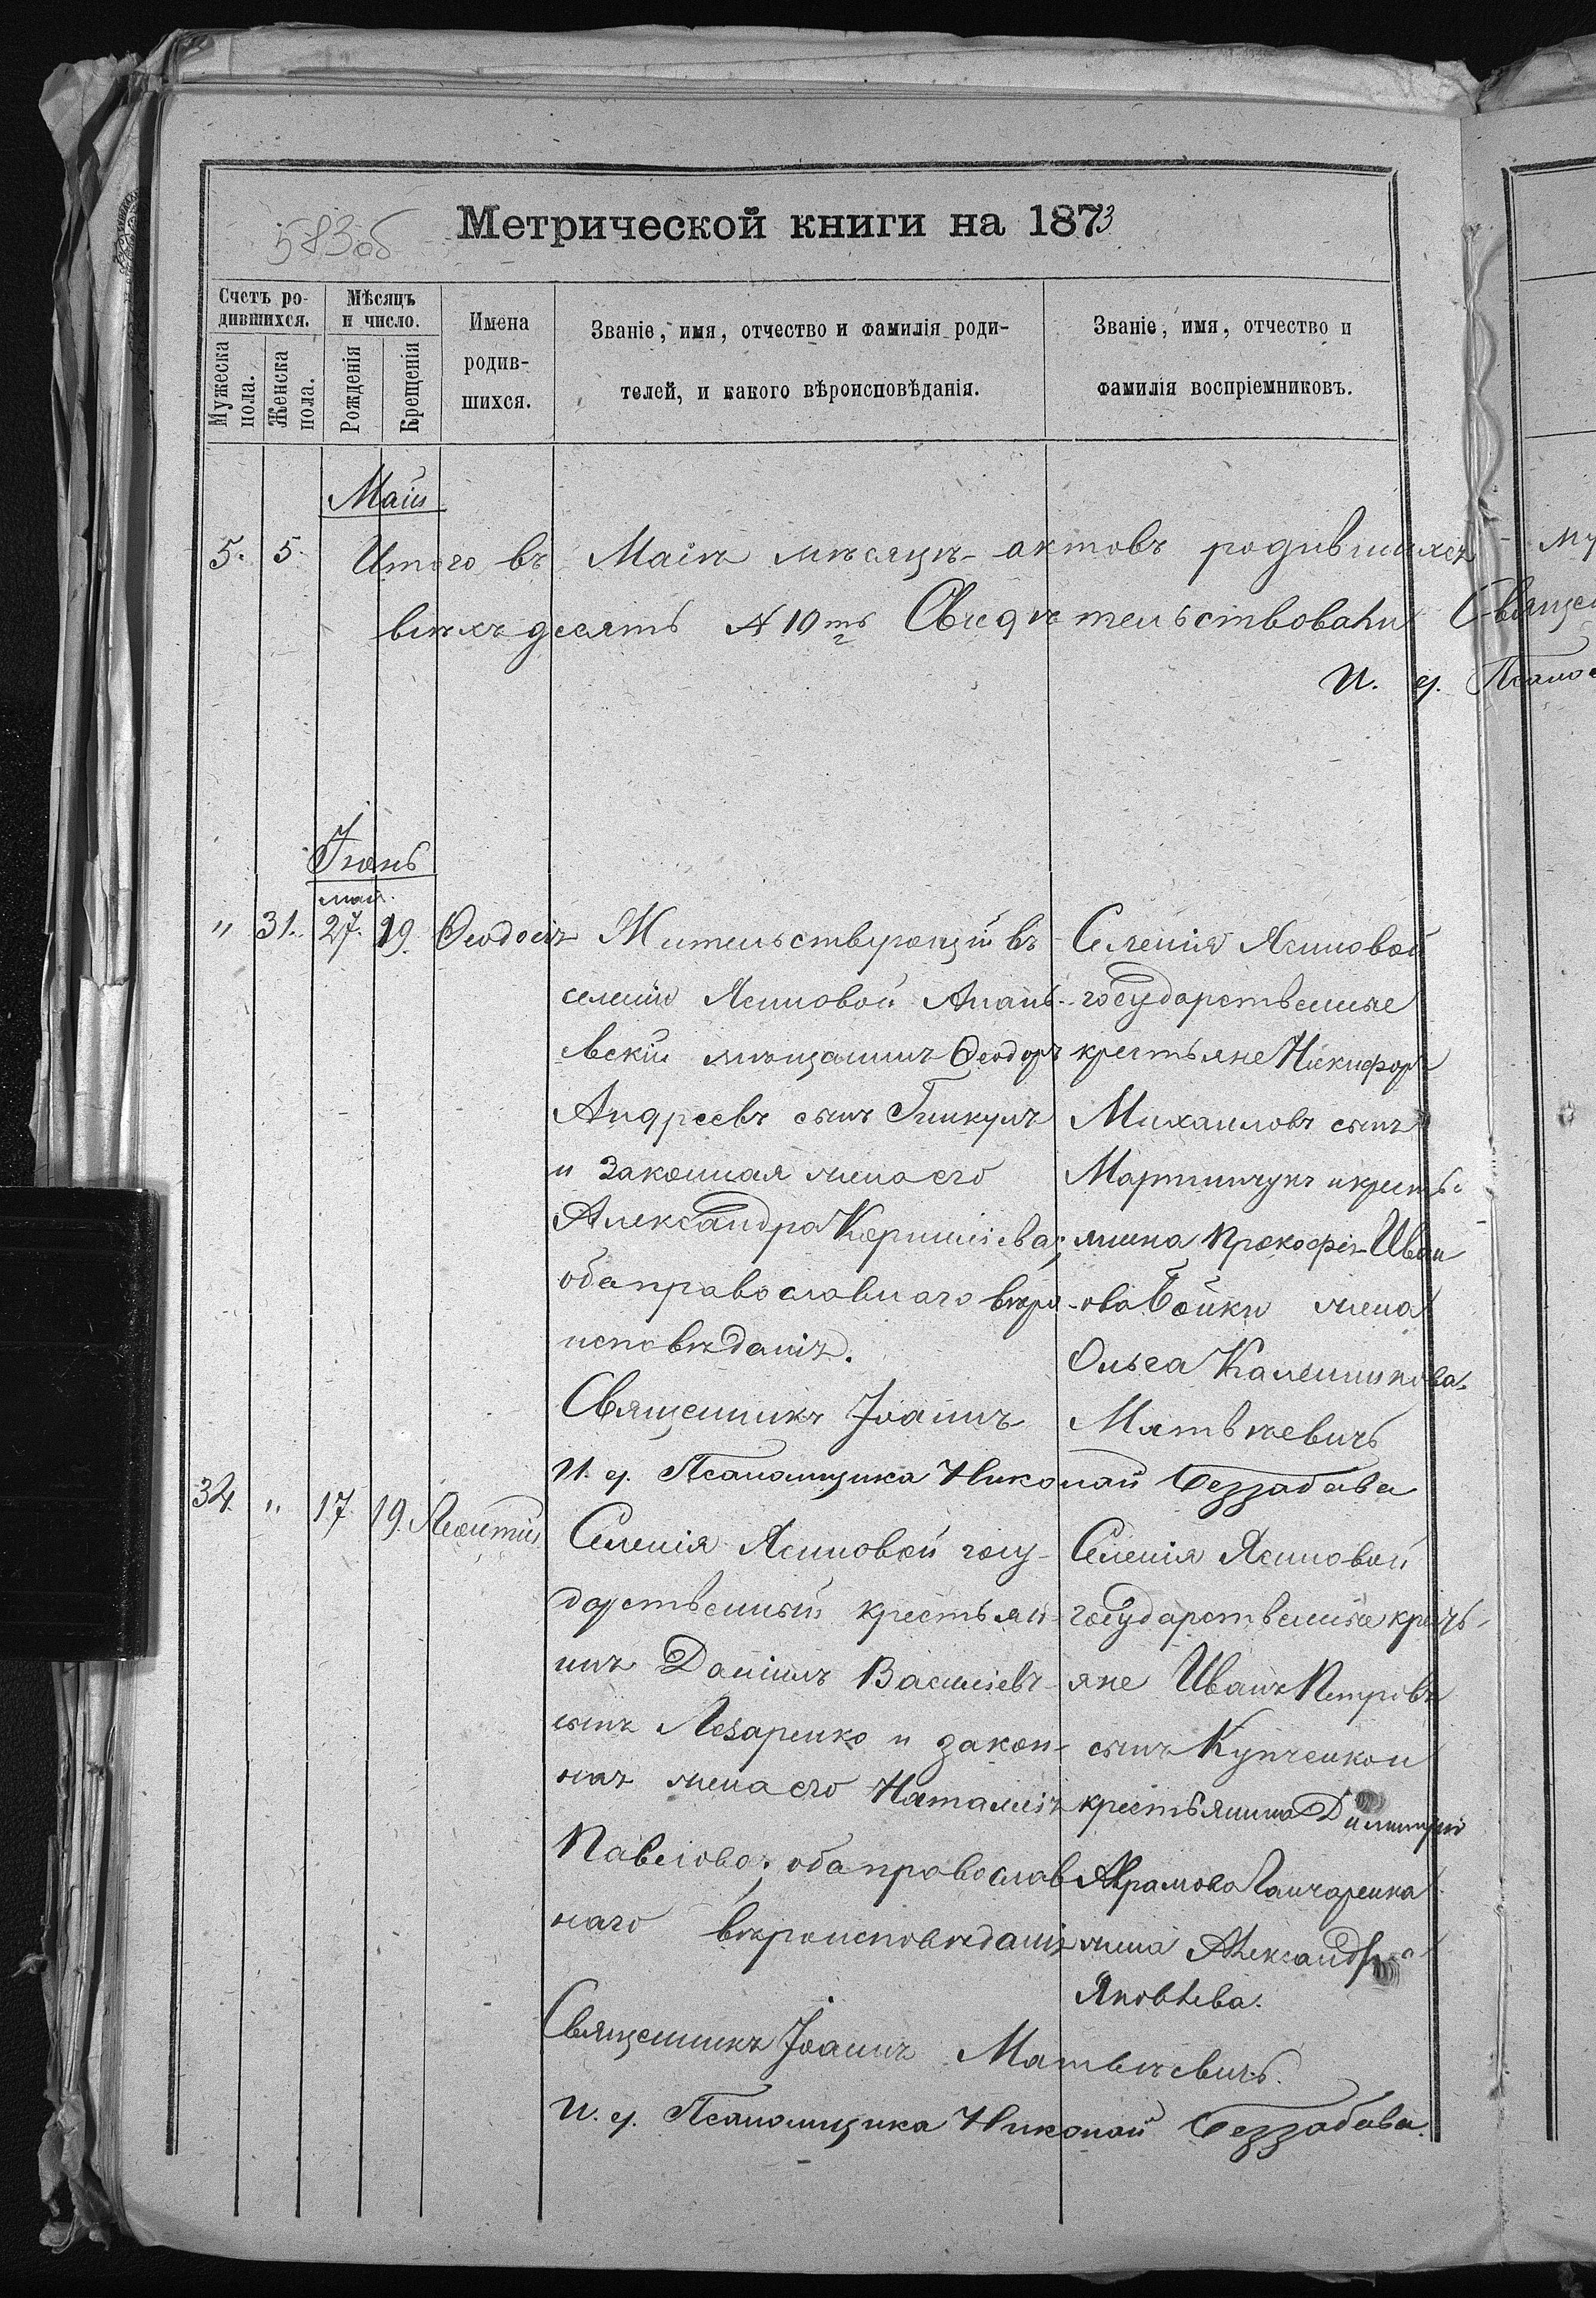 583об
Метрической книги на 1873
Счетъ ро-
дившихся.
Мѣсяцъ
и число.
Мужеска
пола.
Женска
пола.
Рожденія
Крещенія
Имена
родив-
шихся.
Званіе, имя, отчество и фамилія роди-
телей, и какого вѣроисповѣданія.
Званіе, имя, отчество и
фамилія воспріемниковъ.
Май
5. 5. Итого въ Маіѣ мѣсяцѣ актовъ родившихся
всѣхъ десять № 10ть Свидѣтельствовали
И. д.
Іюнь
май.
" 31. 27. 19. Ѳеодосія
Жительствующій въ
селеніи Ясиновой Анань-
евскій мѣщанинъ Ѳеодоръ
Андреевъ сынъ
и законная жена его
Александра Корниліева;
оба православнаго вѣро-
исповѣданія.
Селенія Ясиновой
государственные
крестьяне Никифоръ
Михаиловъ сынъ
Мартинчукъ и кресть-
янина Прокофія Иван
ова Бойки жена
Ольга Калинникова.
Священникъ Іоаннъ Матвѣевичъ
И. д. Псаломщика Николай Беззабава
34. " 17. 19. Леонтій
Селенія Ясиновой госу-
дарственный крестьян-
инъ Даніилъ Василіевъ
сынъ Лазаренко и закон-
ная жена его Наталія
Павлова; оба православ
наго вѣроисповѣданія
Селенія Ясиновой
государственные кресть-
яне Иванъ Петровъ
сынъ Купченко и
крестьянина Димитрія
Аврамова Ганчаренка
жена Александра
Яковлева.
Священникъ Іоаннъ Матвѣевичъ.
И. д. Псаломщика Николай Беззабава.